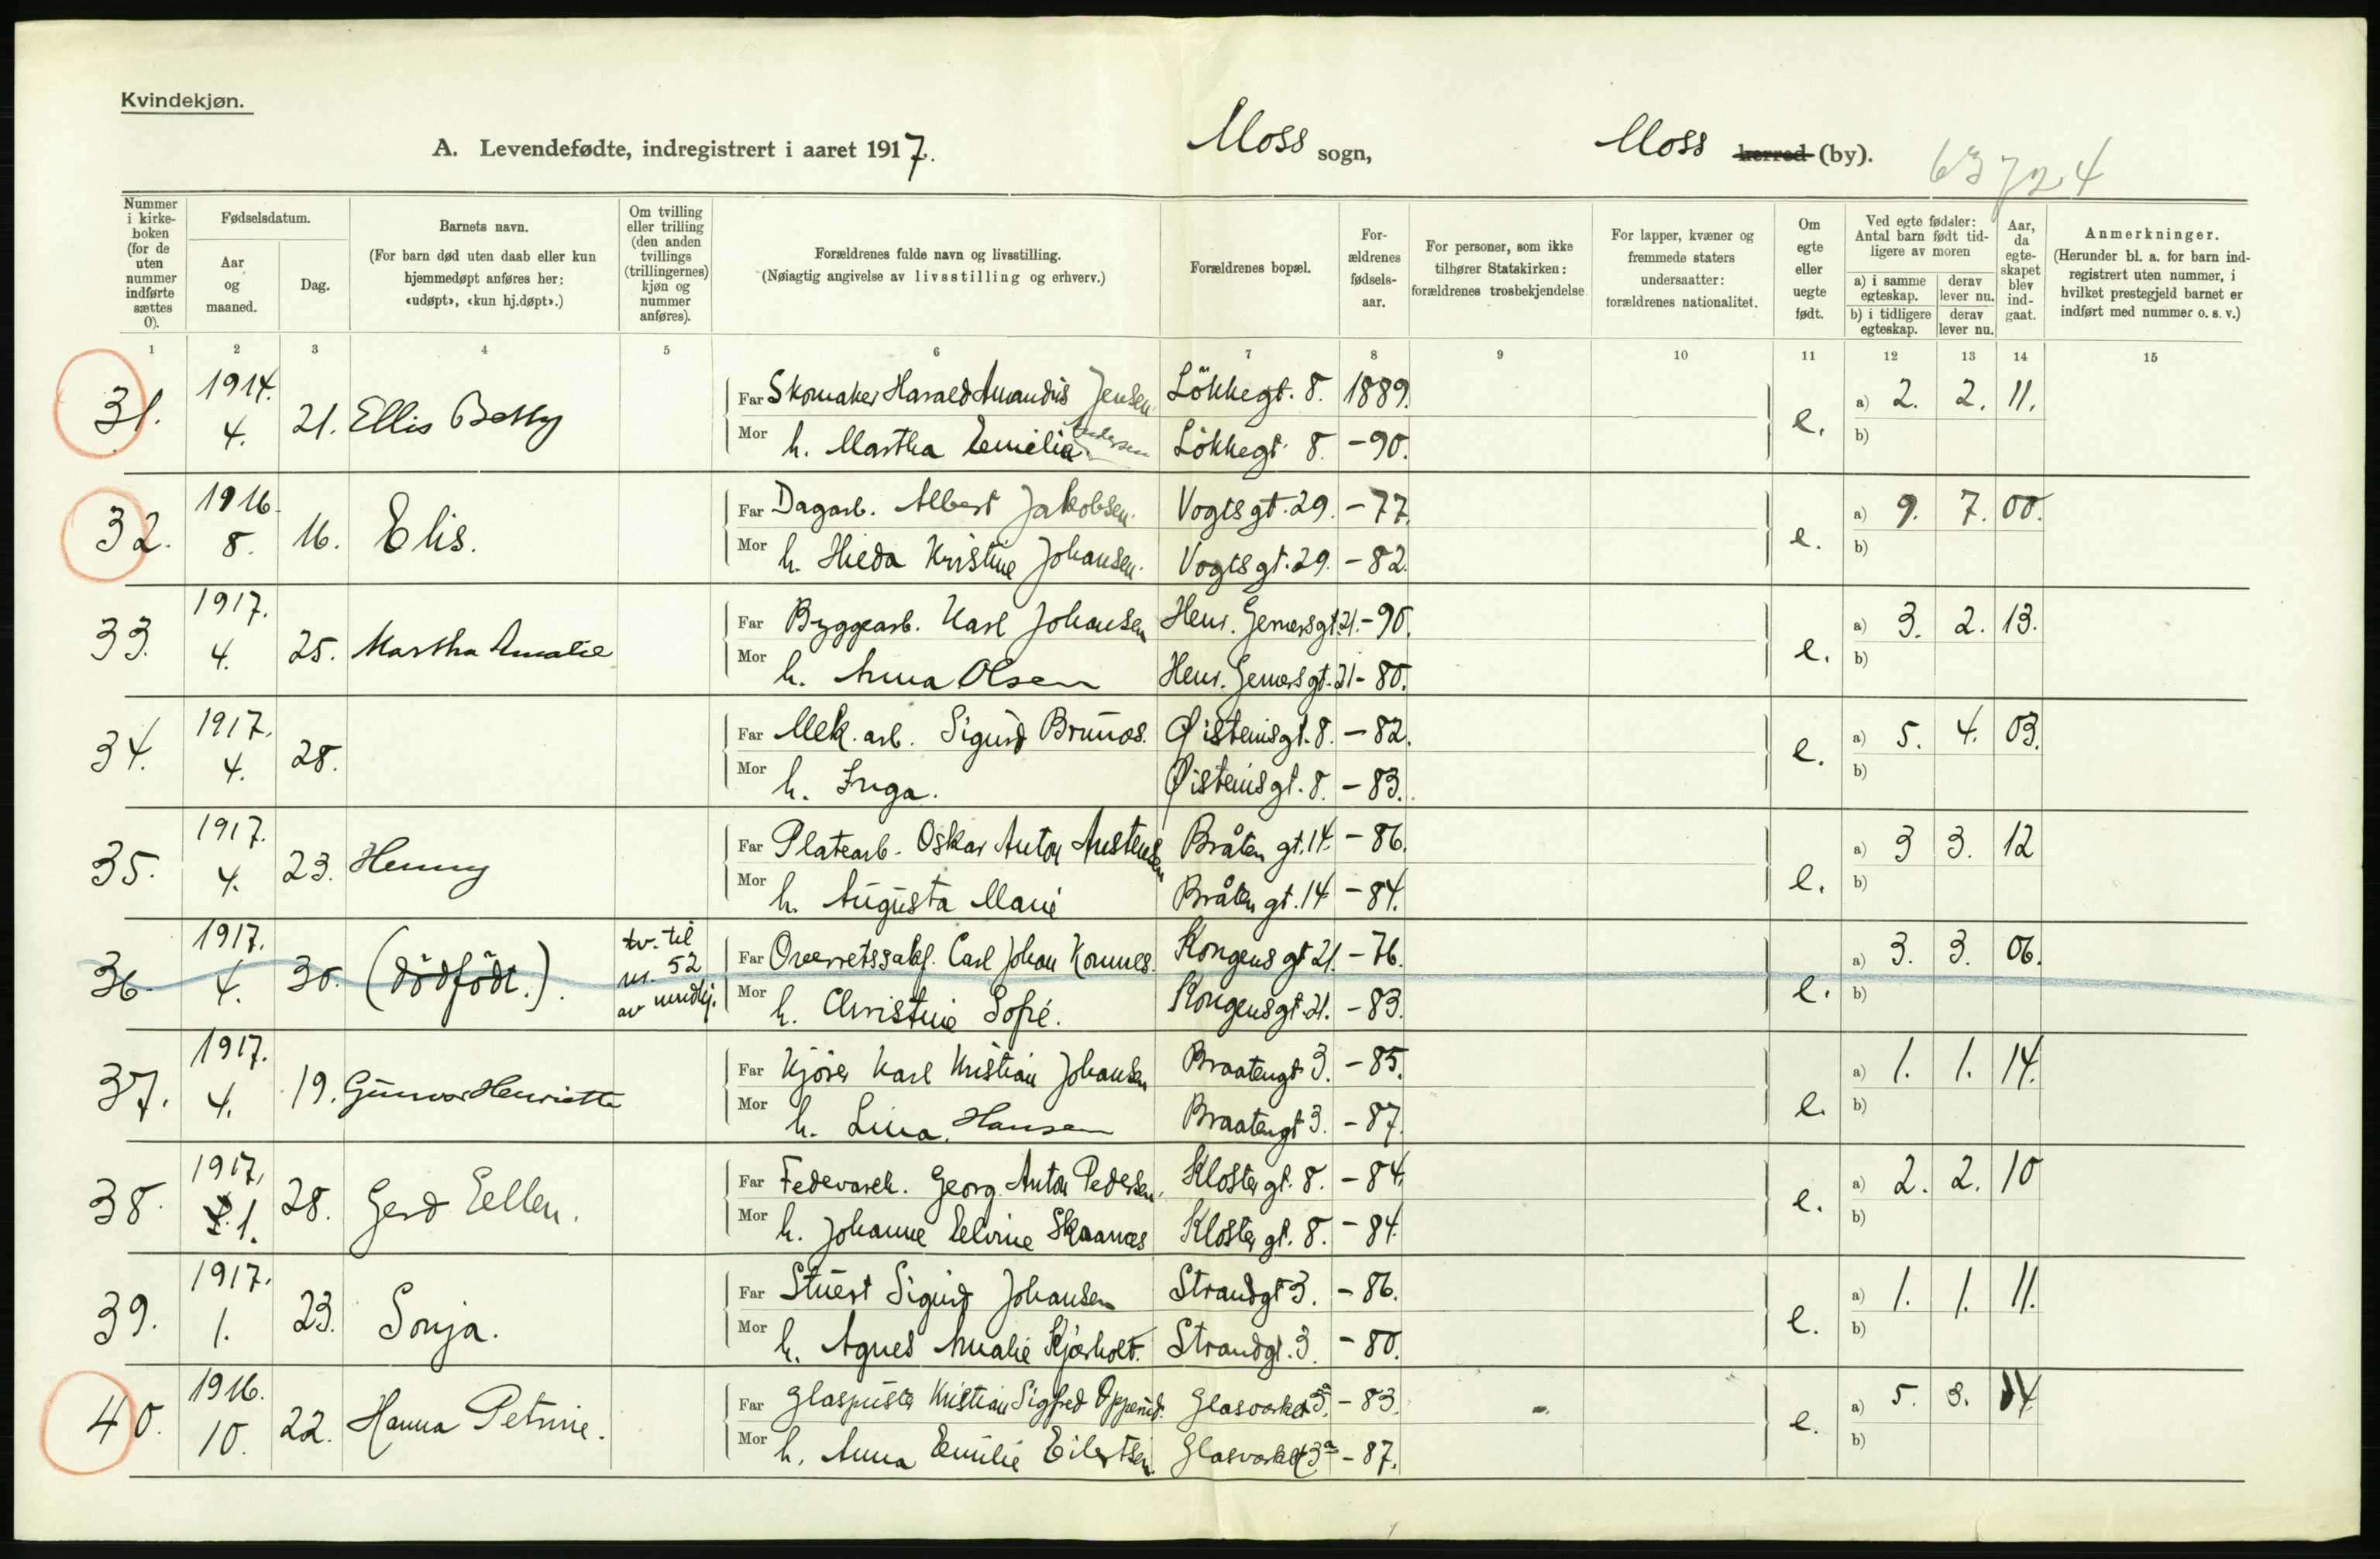 Kvindekjøn.
A. Levendefødte, indregistrert i aaret 1917.
Moss sogn,
Moss herred (by).
63724
Nummer i kirke-boken (for de uten nummer indførte sættes 0).
Fødselsdatum.
Aar og maaned.
Dag.
Barnets navn.
(For barn død uten daab eller kun hjemmedøpt anføres her: «udøpt», «kun hj.døpt».)
Om tvilling eller trilling (den anden tvillings (trillingernes) kjøn og nummer anføres).
Forældrenes fulde navn og livsstilling.
(Nøiagtig angivelse av livsstilling og erhverv.)
Forældrenes bopæl.
For-ældrenes fødsels-aar.
For personer, som ikke tilhører Statskirken: forældrenes trosbekjendelse
For lapper, kvæner og fremmede staters undersaatter: forældrenes nationalitet.
Om egte eller uegte født.
Ved egte fødsler: Antal barn født tid-ligere av moren
a) i samme egteskap.
derav lever nu.
b) i tidligere egteskap.
derav lever nu.
Aar, da egte-skapet blev ind-gaat.
Anmerkninger.
(Herunder bl. a. for barn ind-registrert uten nummer, i hvilket prestegjeld barnet er indført med nummer o. s. v.)
1 2 3 4 5 6 7 8 9 10 11 12 13 14 15
31. 1914. 4. 21. Ellis Betty
Far Skomaker Harald Amandus Jensen Løkkegt. 8. 1889.
Mor h. Martha Emilie Andersen Løkkegt. 8. -90.
e. a) 2. 2. 11.
b)
32. 1916. 8. 16. Elis.
Far Dagarb. Albert Jakobsen. Vogtsgt. 29. -77.
Mor h. Hilda Kristine Johansen. Vogtsgt. 29. -82.
e. a) 9. 7. 00.
b)
33. 1917. 4. 25. Martha Amalie
Far Byggearb. Karl Johansen Henr. Gernersgt. 21. -90.
Mor h. Anna Olsen Henr. Gernersgt. 21 -80.
e. a) 3. 2. 13.
b)
34. 1917. 4. 28.
Far Mek. arb. Sigurd Brunos. Øisteinsgt. 8. -82.
Mor h. Inga. Øisteinsgt. 8. -83.
e. a) 5. 4. 03.
b)
35. 1917. 4. 23. Henny
Far Platearb. Oskar Anton Austensen Bråten gt. 14. -86.
Mor h. Augusta Marie Bråten gt. 14 -84.
e. a) 3 3. 12
b)
36. 1917. 4. 30. (dødfødt.). tv. til nr. 52 av mndkj.
Far Overretssakf. Carl Johan Konnes. Kongens gt 21. -76.
Mor h. Christine Sofie. Kongensgt. 21. -83.
e. a) 3. 3. 06.
b)
37. 1917. 4. 19. Gunvor Henriette
Far Kjører Karl Kristian Johansen Braatengt 3. -85.
Mor h. Lina Hansen Braatengt 3. -87.
e. a) 1. 1. 14.
b)
38. 1917. 1. 28. Gerd Ellen.
Far Fedevareh. Georg Anton Pedersen, Klostergt. 8. -84.
Mor h. Johanne Elvine Skaanes Klostergt. 8. -84.
e. a) 2. 2. 10
b)
39. 1917. 1. 23. Sonja.
Far Stuert Sigurd Johansen Strandgt 3. -86.
Mor h. Agnes Amalie Kjærholt. Strandgt. 3. -80.
e. a) 1. 1. 11.
b)
40. 1916. 10. 22. Hanna Petrine.
Far Glaspuster Kristian Sigfred Opperud. Glasværket 3a. -83.
Mor h. Anna Emilie Eilertsen. Glasværket 3a -87.
e. a) 5. 3. 04
b)